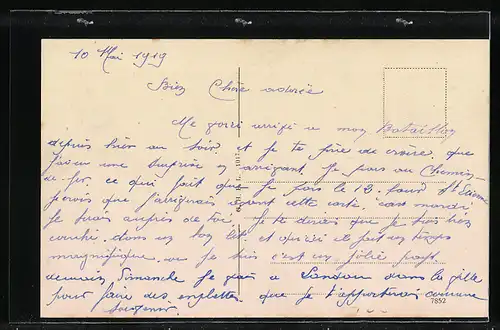 10 Mai 1919
Bien Chère adorée
Me voici arrivé a mon Bataillon
depuis hier au soir et je te prie de croire que
j'ai eu une surprise en arrivant. Je pars au Chemin
de fer, ce qui fait que je pars le 13 pour St Etienne
je crois que j'arriverais avant cette carte
Je serais auprès de toi. Je te dirais que je suis très
couché dans un bon lit et qu'ici il fait un temps
magnifique. ou je suis c'est un jolie pays.
demain Dimanche je vais a Landau dans la ville
pour faire des emplettes que je t'apporterais comme
souvenir
7852